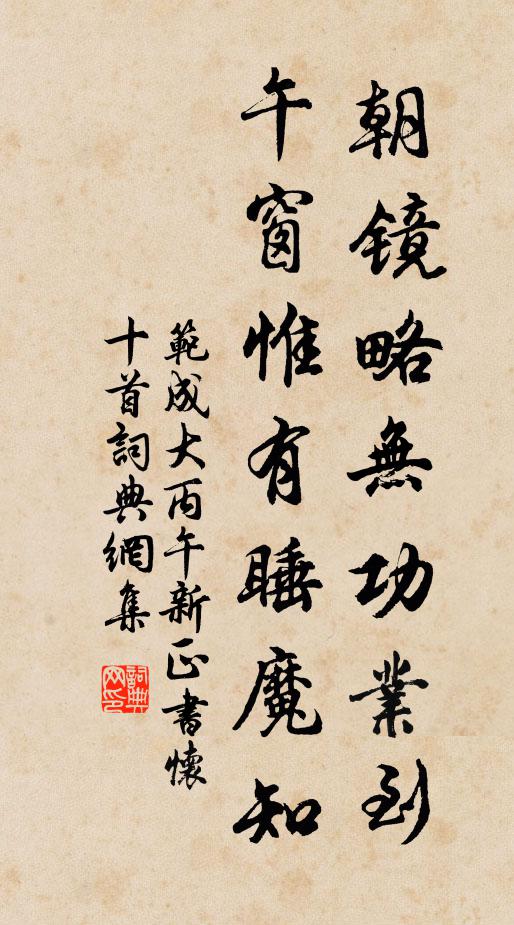 朝镜略無功業到
午窗惟有睡魔知
範成大丙午新正書懷
十首詞典網集
詞典
网印